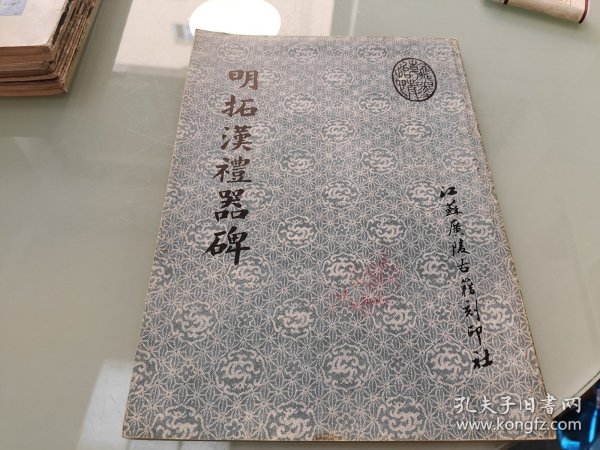 明拓漢禮器碑
江蘇廣陵古籍刻印社
孔夫子旧书网
www.kongfz.com